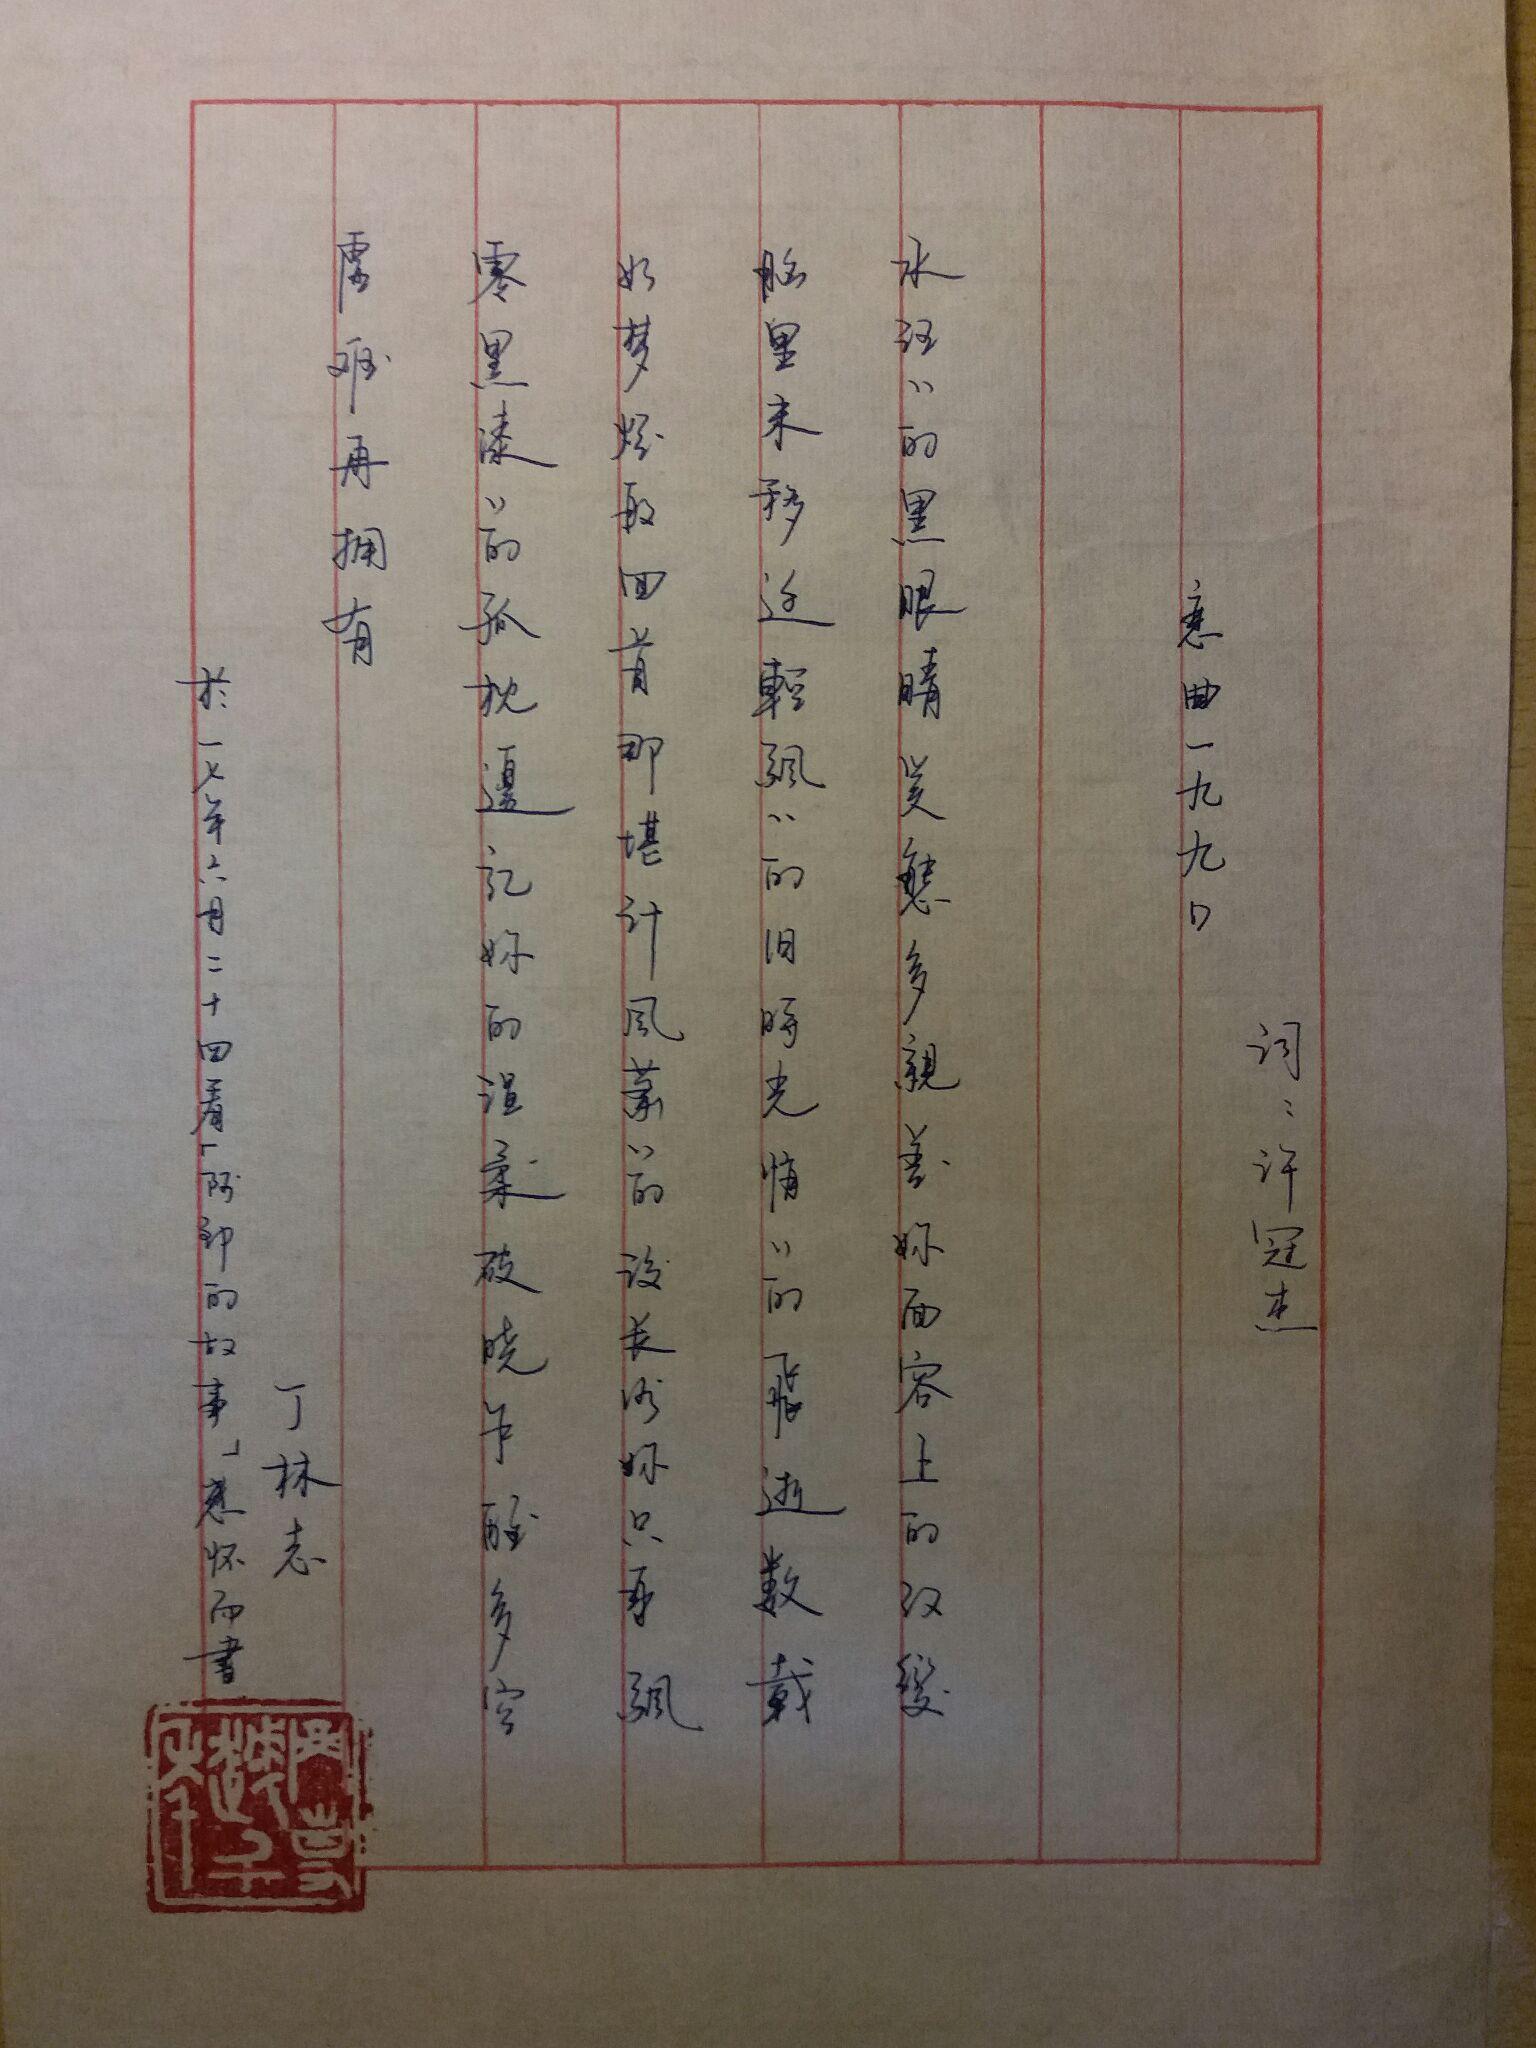 詞：許冠杰
戀曲一九九〇
水汪〻的黑眼睛笑態多親善妳面容上的改變
腦里未移边輕飄〻的旧時光悄〻的飛逝數載
如夢烟散回首那堪計風蕭〻的說長流妳只再飄
零黑漆〻的孤枕邊記妳的溫柔破曉乍醒多空
虛难再拥有
丁林志
於一七年六月二十四看「阿郎的故事」感怀而書